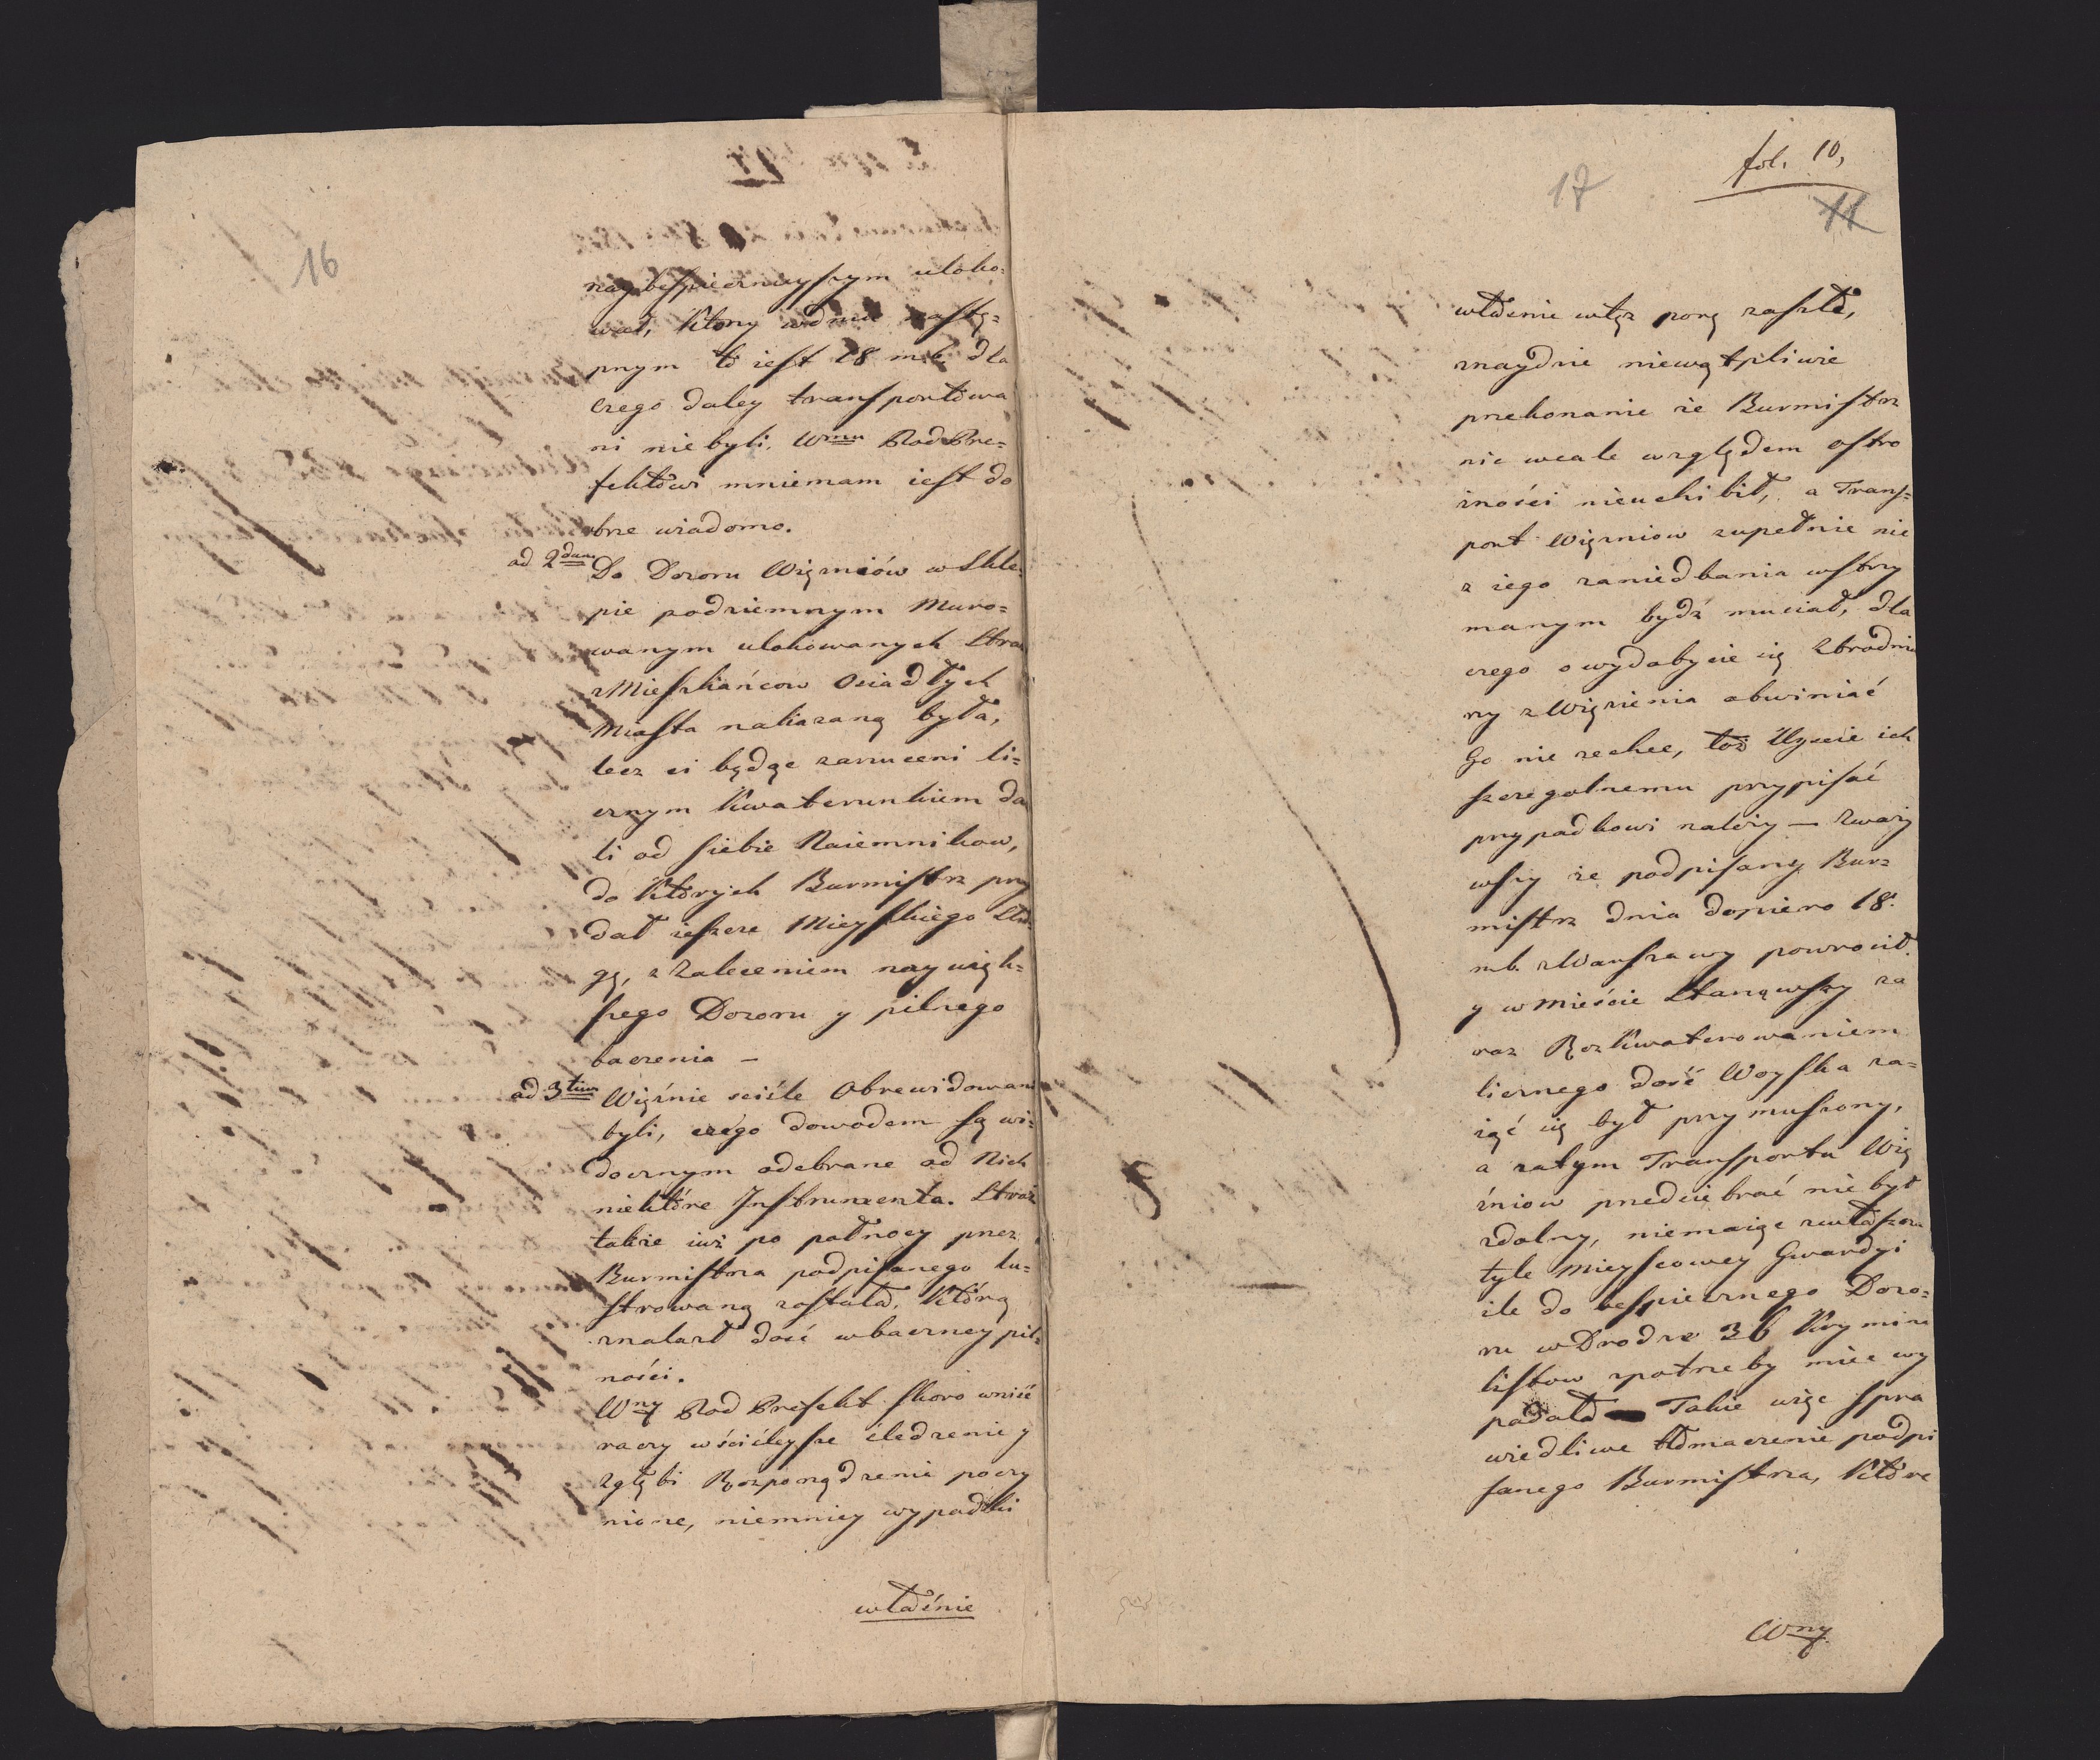 16
naybespiecznieyszym uloko-
wał, który w dniu nastę-
pnym to iest 18 m.b. dla
czego daley transportowa
ni nie byli. Wmu PodPre-
fektowi mniemam iest do
brze wiadomo.
ad 2dum Do Dozoru Więzniów w Skle-
pie podziemnym Muro-
wanym ulokowanych Straż
z Mieszkańcow Osiadłych
Miasta nakazaną była,
lecz ci będąc zarzuceni li-
cznym Kwaterunkiem da
li od siebie Naiemnikow,
do których Burmistrz przy
dał ieszcze Mieyskiego Słu-
gę, z Zaleceniem naywięk-
szego Dozoru y pilnego
baczenia –
ad 3tium Więźnie scićle Obrewidowani
byli, czego dowodem są wi-
docznym odebrane od Nich
niektóre Instrumenta. Straż
także iuż po północy przez
Burmistrza podpisanego lu-
strowaną została, którą
znalazł dość w baczney pil-
ności.
Wny Pod Prefekt skoro wniść
raczy w ściśleysze śledzenie y
zgłębi Rozporządzenie poczy
nione, niemniey wypadki
właśnie
17
fol. 10,
11
właśnie w tęz porę zaszłe,
znaydzie niewątpliwie
przekonanie że Burmistrz
nic wcale względem ostro
żności nieuchibił, a Trans-
port Więzniow zupełnie nie
z iego zaniedbania wstrzy
manym bydź musiał, dla
czego o wydobycie się Zbrodnia
rzy z Więzienia obwiniać
Go nie zechce, toż Uyscie ich
szczegolnemu przypisać
przypadkowi należy — Zważy
wszy że podpisany Bur-
mistrz dnia dopiero 18.
m.b. z Warszawy powrocił
y w Mieście Stanąwszy za
raz Rozkwaterowaniem
licznego dość Woyska za-
iąć się był przymuszony,
a zatym Transportu Wię
źniow przedsiebrać nie był
zdolny, niemaiąc zwłaszcza
tyle Mieyscowey Gwardyi
ile do bespiecznego Dozo-
ru w Drodze 36 Krymina
listow potrzeby mieć wy
padało — Takie więc spra
wiedliwe tłomaczenie podpi
sanego Burmistrza, które
Wny